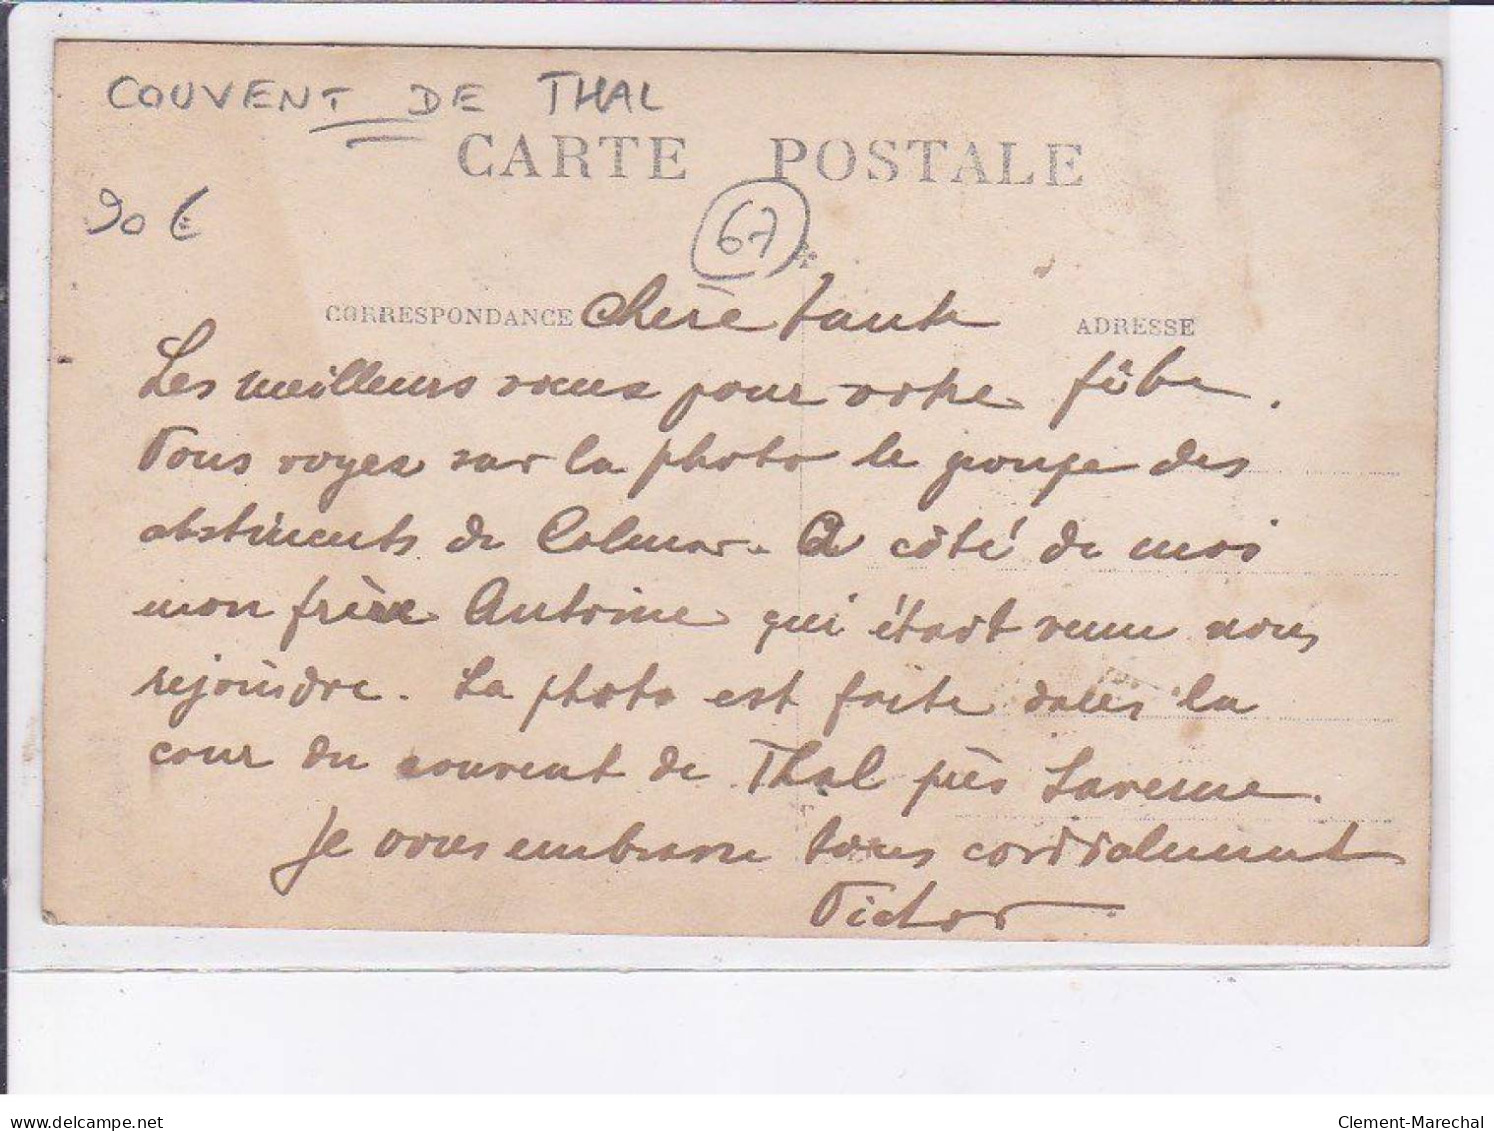 COUVENT DE THAL
CARTE POSTALE
90 €
67
CORRESPONDANCE Chère tante ADRESSE
Les meilleurs vœux pour votre fête.
Vous voyez sur la photo le groupe des
abstinents de Colmar. A côté de moi
mon frère Antoine qui était venu nous
rejoindre. La photo est faite dans la
cour du couvent de Thal près Saverne.
Je vous embrasse tous cordialement
Victor
delcampe.net
Clement-Marechal